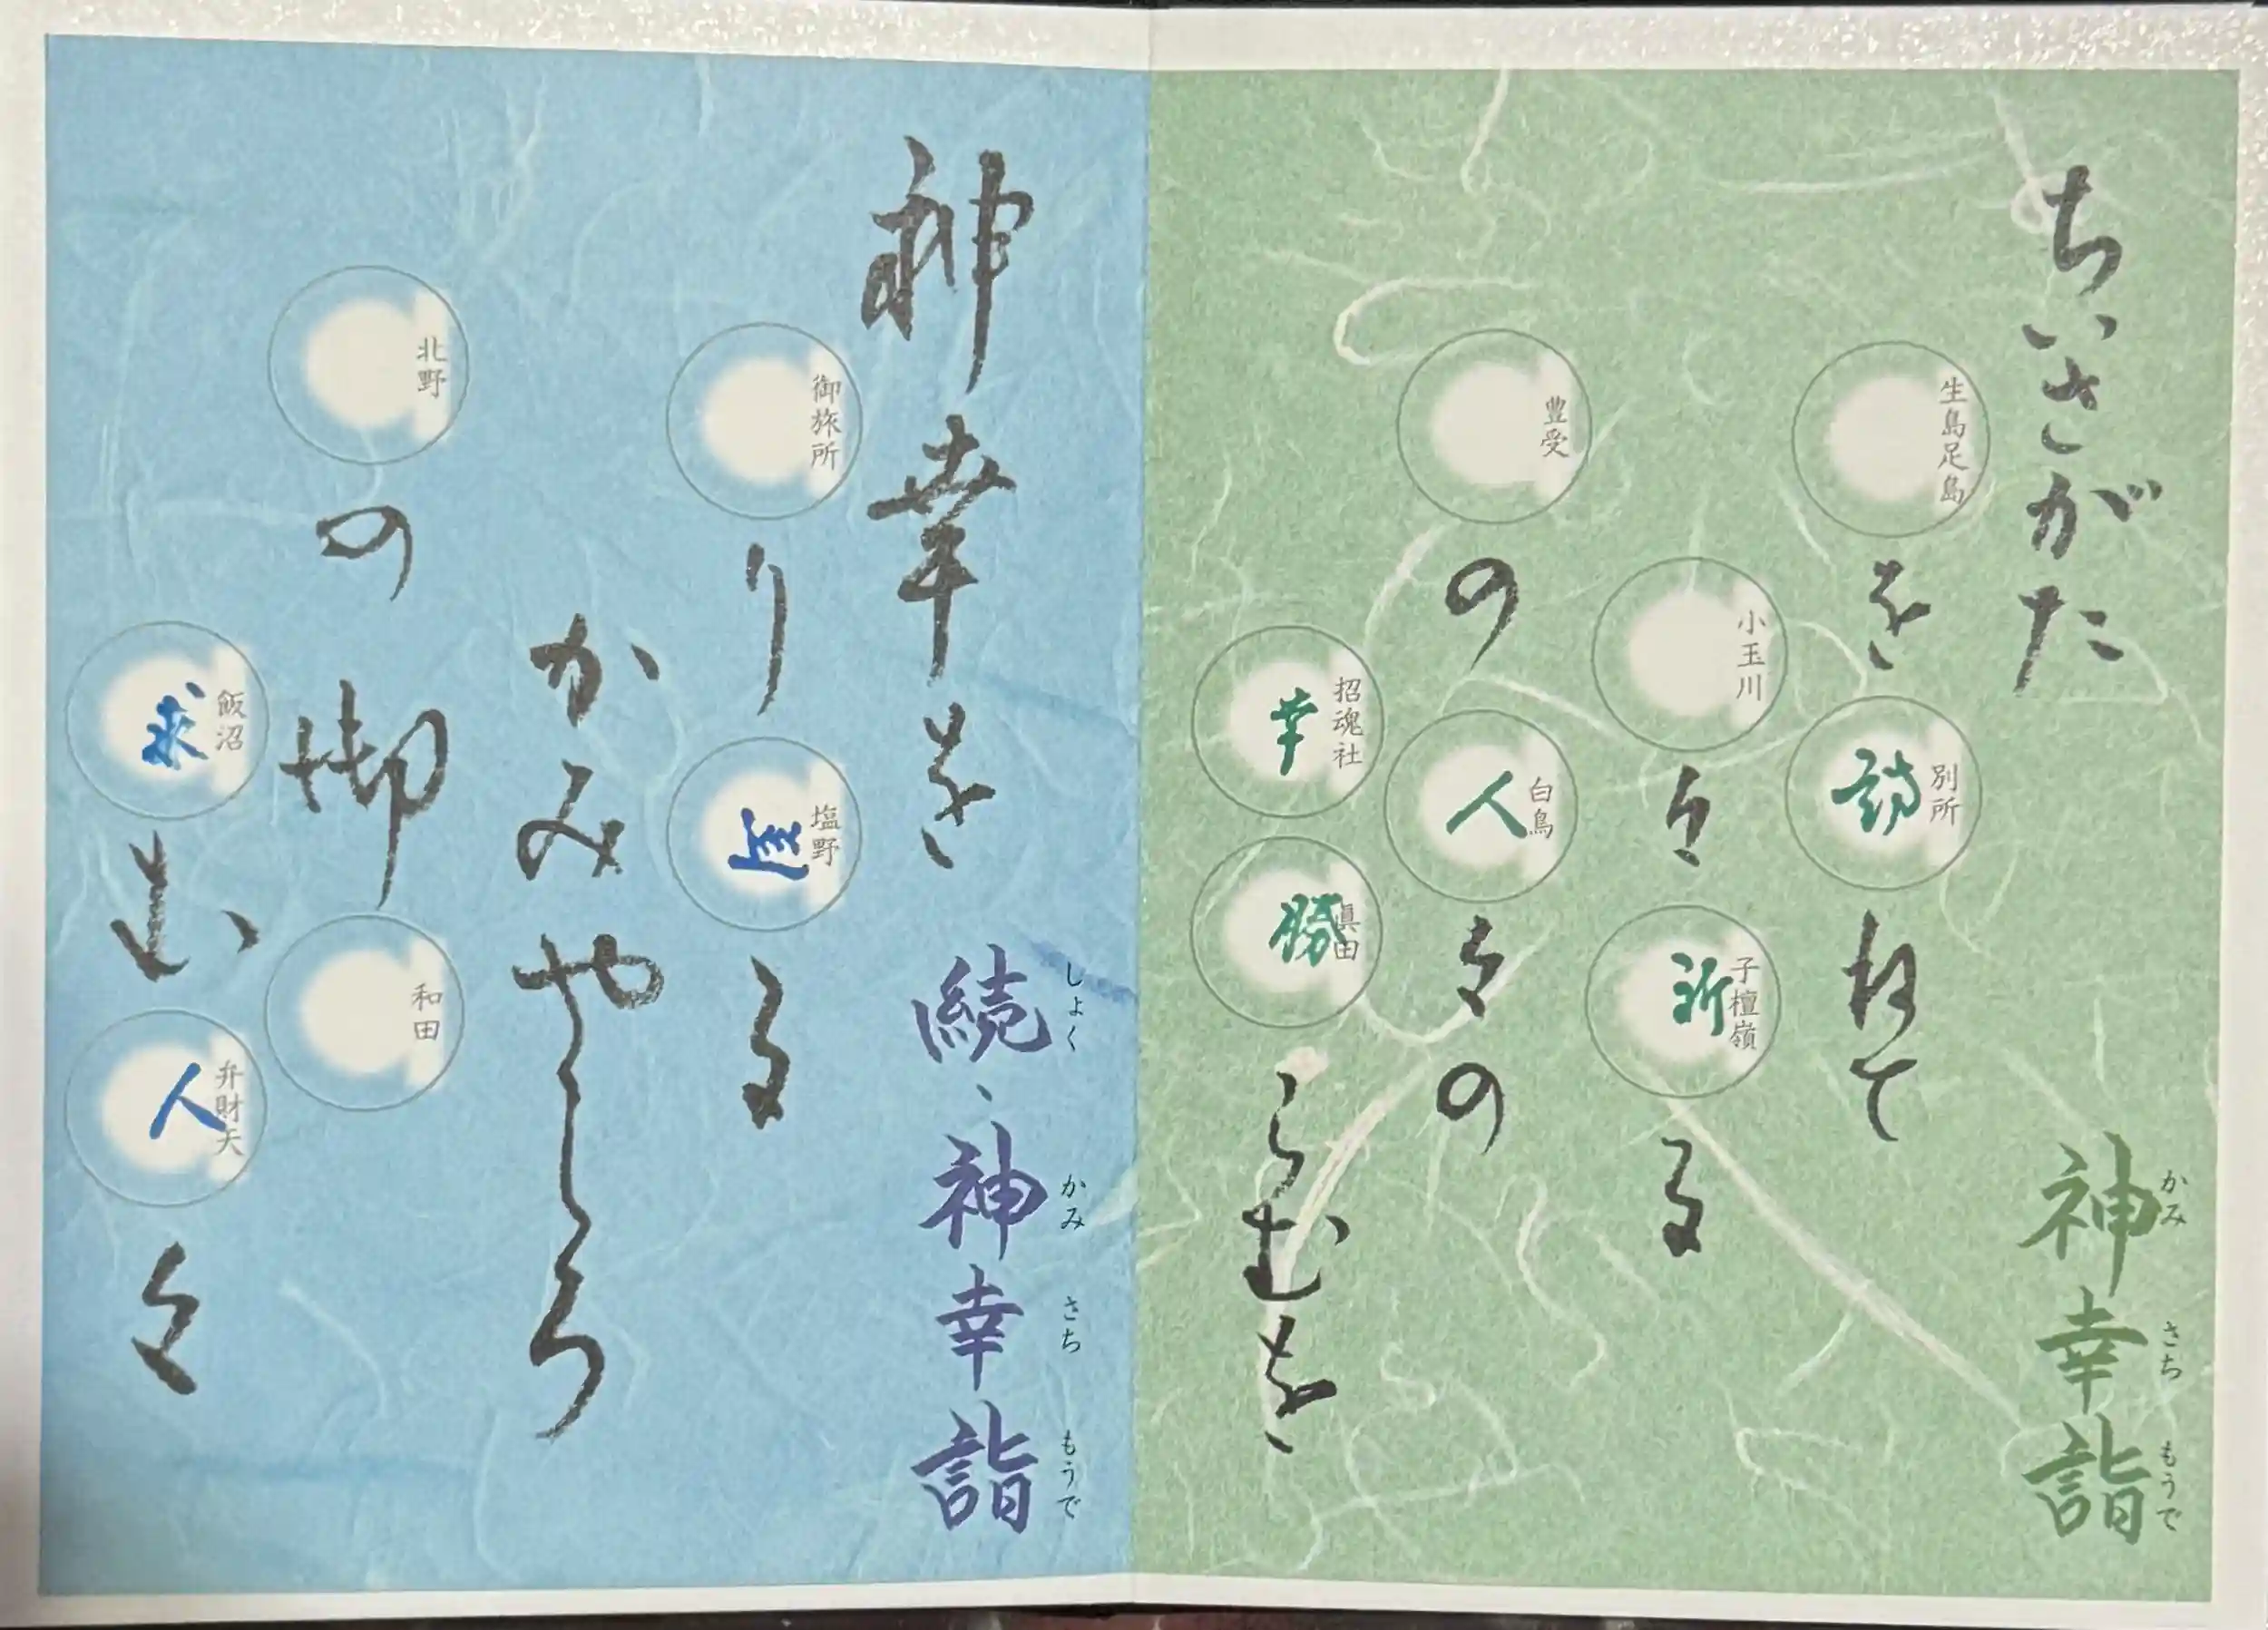 ちいさがた
神幸詣
かみ さち もうで
生島足島 を 別所 訪 ねて
小玉川 々 子檀嶺 祈 る
豊受 の 白鳥 人 々の
招魂社 幸 眞田 勝 らむを
神幸を
続、神幸詣
しょく かみ さち もうで
御旅所 り 塩野 る
かみやしろ
北野 の 御 和田
飯沼 求 む 弁財天 人 々